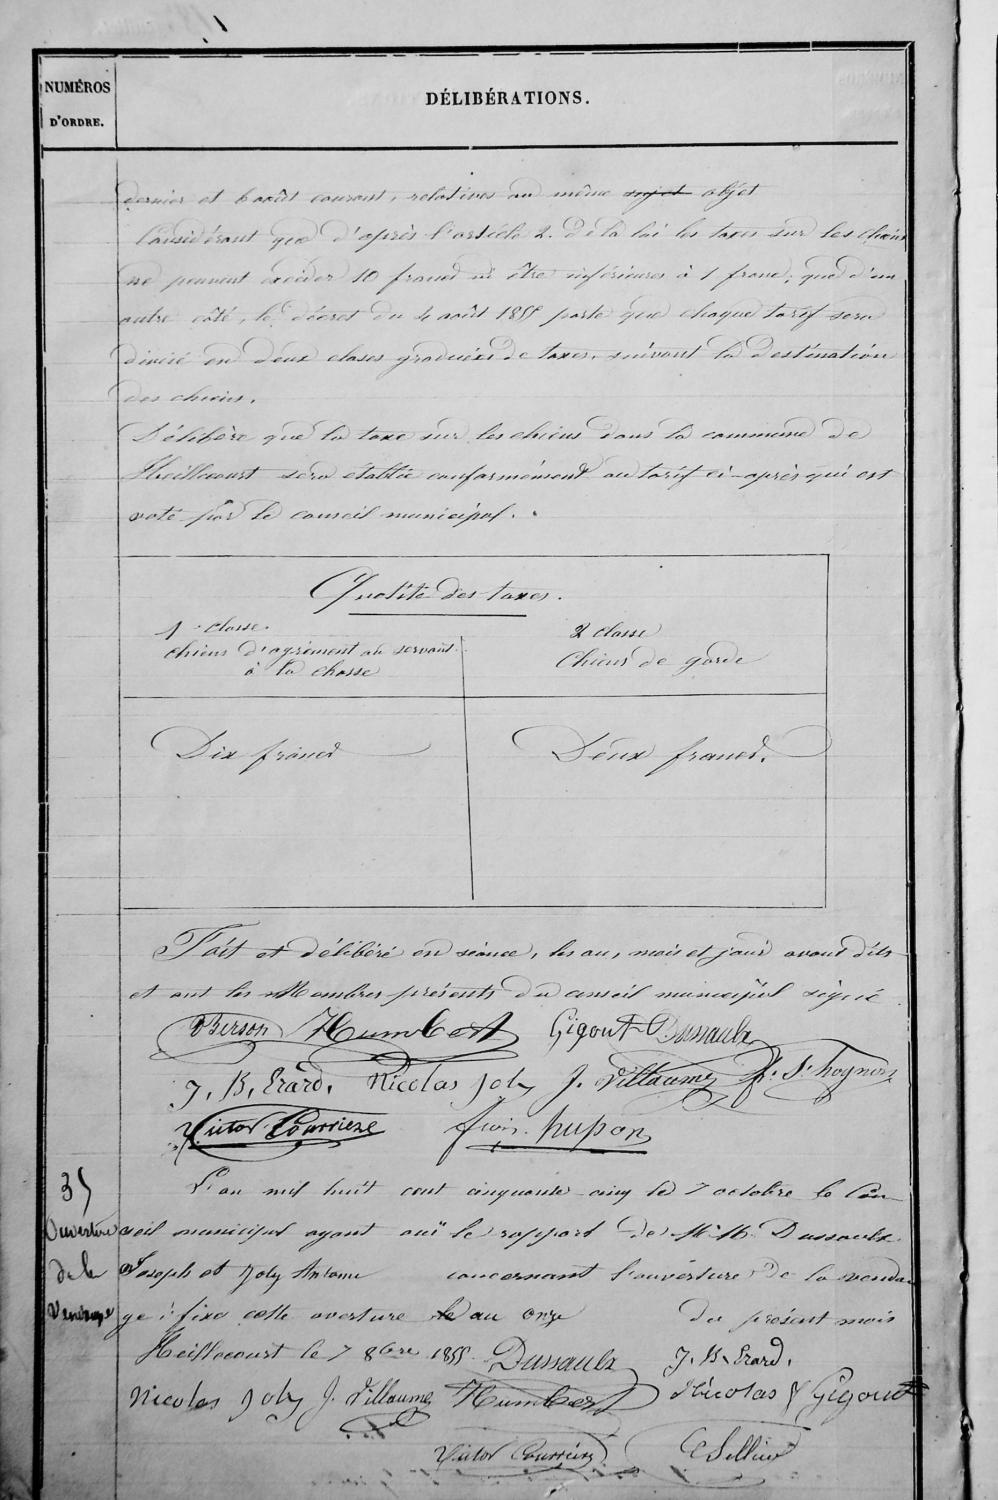 NUMÉROS
D'ORDRE.
DÉLIBÉRATIONS.
dernier et 6 août courant, relatives au même sujet objet
Considérant que d'après l'article 2. de la loi les taxes sur les chiens
ne peuvent excéder 10 francs ni être inférieures à 1 franc; que d'un
autre côté, le décret du 4 août 1855 porte que chaque tarif sera
divisé en deux clases graduées de taxes, suivant la destination
des chiens.
Délibère que la taxe sur les chiens dans la commune de
Heillecourt sera établie conformément au tarif ci-après qui est
voté par le conseil municipal.
Quotité des taxes.
1e classe.
chiens d'agrément ou servant
à la chasse
2 classe
Chiens de garde
Dix francs
Deux francs.
Fait et délibéré en séance, les an, mois et jour avant dits
et ont les Membres présents du conseil municipal signé
Berson Humbert Gigout Dussaulx
J. B. Erard. Nicolas Joly J. Villaume
Victor Courrieze hupon
35
Ouverture
de la
Vendange
L'an mil huit cent cinquante-cinq le 7 octobre le Con-
seil municipal ayant ouï le rapport de M. M. Dussaulx
Joseph et Joly Antoine concernant l'ouverture de la venda
ge : fixe cette overture le au onze du présent mois
Heillecourt le 7 8bre 1855 Dussaulx J. B. Erard.
Nicolas Joly J. Villaume Humbert Nicolas Gigout
Victor Courrieze